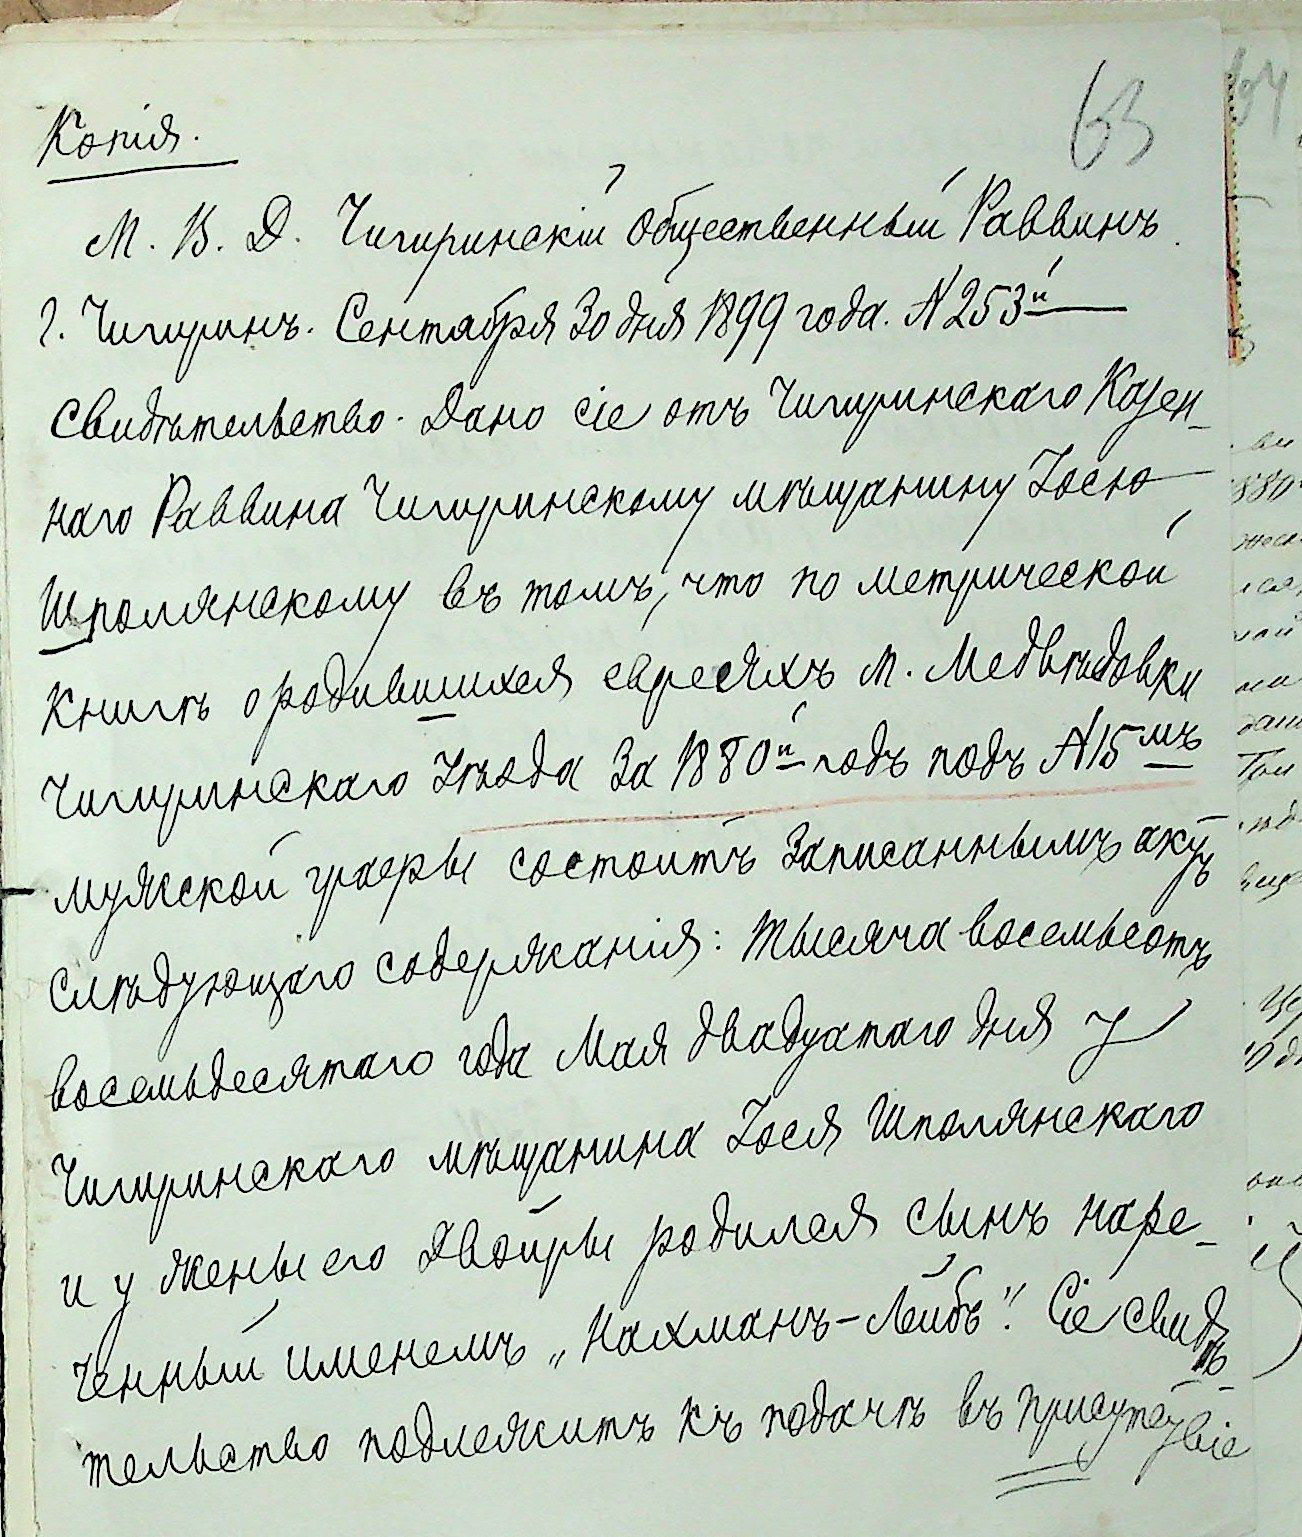 63
Копія.
М. В. Д. Чигиринскій Общественный Раввинъ.
г. Чигиринъ. Сентября 30 дня 1899 года. №253й
Свидѣтельство. Дано сіе отъ Чигиринскаго Казен-
наго Раввина Чигиринскому мѣщанину Іосю
Шполянскому въ томъ, что по метрической
книгѣ о родившихся евреяхъ м. Медвѣдовки
Чигиринскаго Уѣзда За 1880й годъ подъ №15мъ
мужской графы состоитъ Записаннымъ актъ
слѣдующаго содержанія: Тысяча восемьсотъ
восемьдесятаго года Мая двадцатаго дня у
Чигиринскаго мѣщанина Іося Шполянскаго
и у жены его Двойры родился сынъ наре-
ченный именемъ „Нахманъ-Лейбъ". Сіе свидѣ-
тельство подлежитъ къ подачѣ въ присутствіе